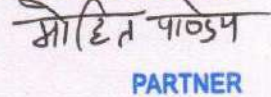 मोहित पाण्डेय
PARTNER